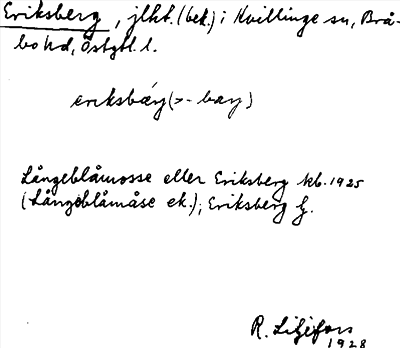 Eriksberg, jlht. (bek.) i Kvillinge sn, Brå-
bo hd, Östgtl. l.
eriksbæ̀ry (>-bary)
Långeblåmosse eller Eriksberg kb. 1925
(Långeblåmåse ek.); Eriksberg G.
R. Liljefors
1928